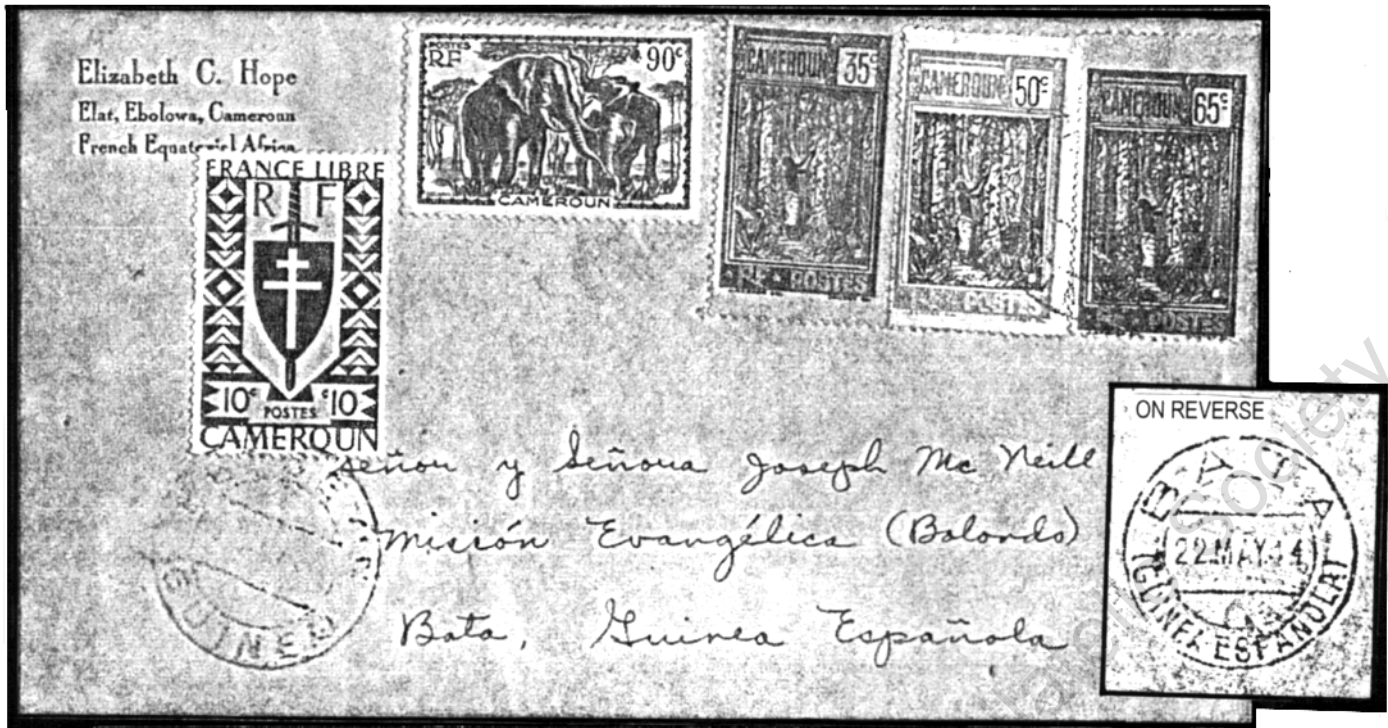 Elizabeth C. Hope
Elat, Ebolowa, Cameroun
French Equatorial Africa
POSTES
RF
90c
CAMEROUN
CAMEROUN 35c
RF POSTES
CAMEROUN 50c
POSTES
CAMEROUN 65c
POSTES
FRANCE LIBRE
R F
10c POSTES c10
CAMEROUN
Señor y Señora Joseph McNeill
Misión Evangélica (Bolondo)
Bata, Guinea Española
GUINEA
ON REVERSE
BATA
22.MAY.44
(GUINEA ESPAÑOLA)
Society